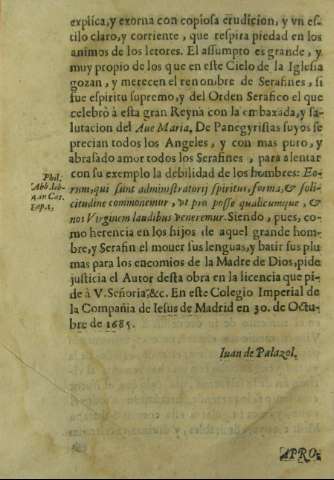 explica, y exorna con copiosa erudicion, y vn es-
tilo claro, y corriente, que respira piedad en los
animos de los letores. El assumpto es grande, y
muy propio de los que en este Cielo de la Iglesia
gozan, y merecen el renombre de Serafines, si
fue espiritu supremo, y del Orden Serafico el que
celebrò à esta gran Reyna con la embaxada, y sa-
lutacion del Aue Maria. De Panegyristas suyos se
precian todos los Angeles, y con mas puro, y
abrasado amor todos los Serafines, para alentar
con su exemplo la debilidad de los hombres: Eo-
rum, qui sunt administratorij spiritus, forma, & soli-
citudine commonemur, vt pro posse qualicumque, &
nos Virginem laudibus veneremur. Siendo, pues, co-
mo herencia en los hijos de aquel grande hom-
bre, y Serafin el mouer sus lenguas, y batir sus plu-
mas para los encomios de la Madre de Dios, pide
justicia el Autor desta obra en la licencia que pi-
de à V. Señoria, &c. En este Colegio Imperial de
la Compañia de Iesus de Madrid en 30. de Octu-
bre de 1685.
Phil.
Abb. lib.
in Can.
cap. 2.
Iuan de Palazol.
APRO-